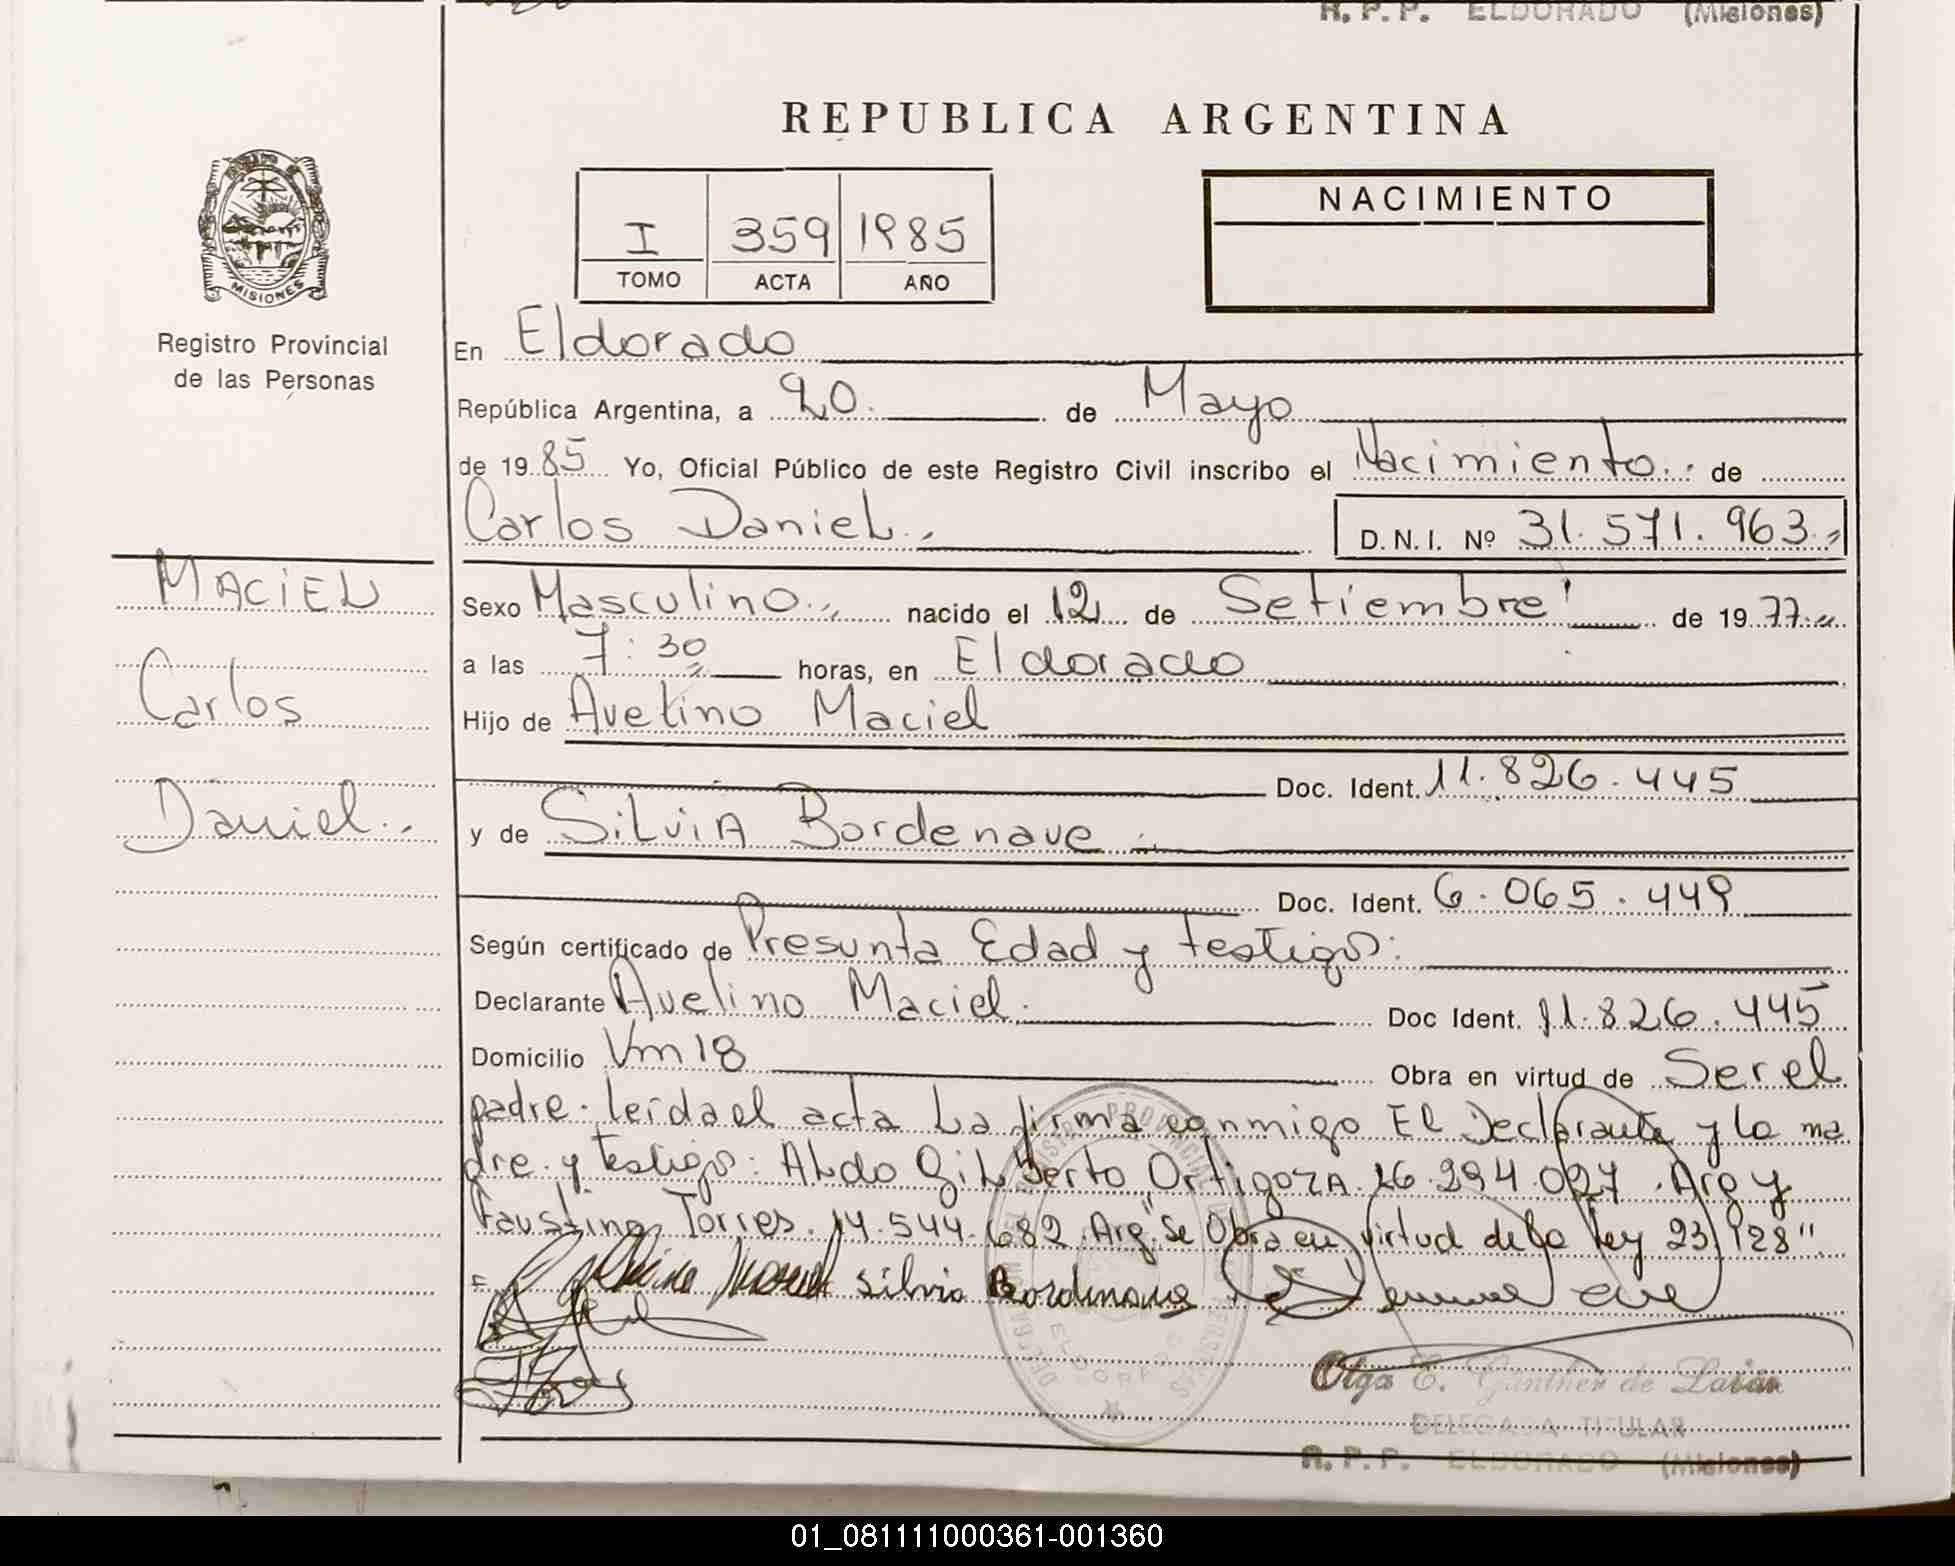 R. P. P. ELDORADO (Misiones)
REPUBLICA ARGENTINA
NACIMIENTO
I 359 1985
TOMO ACTA AÑO
MISIONES
Registro Provincial
de las Personas
En Eldorado
República Argentina, a 20. de Mayo
de 1985 Yo, Oficial Público de este Registro Civil inscribo el Nacimiento de
Carlos Daniel D.N.I. Nº 31.571.963
MACIEL
Carlos
Daniel
Sexo Masculino nacido el 12 de Setiembre de 1977
a las 7:30 horas, en Eldorado
Hijo de Avelino Maciel
Doc. Ident. 11.826.445
y de Silvia Bordenave
Doc. Ident. 6.065.449
Según certificado de Presunta Edad y testigos:
Declarante Avelino Maciel. Doc Ident. 11.826.445
Domicilio Vm 18 Obra en virtud de Ser el
padre. leida el acta La firma conmigo El Declarante y la ma
dre. y testigos: Aldo Gilberto Ortigoza. 16.294.027. Arg y
Faustino Torres. 14.544.682. Arg. "Se Obra en virtud de la ley 23128"
Silvia Bordenave
Olga E. Günther de
DELEGADA TITULAR
R. P. P. ELDORADO (Misiones)
01_081111000361-001360